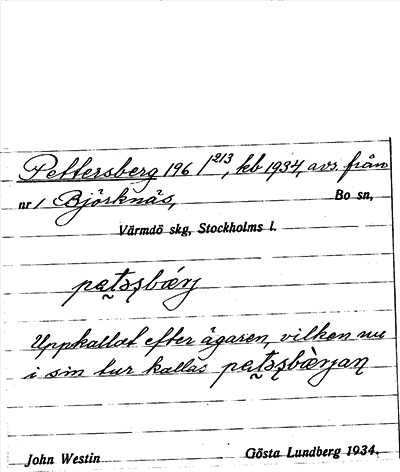 Pettersberg 196 1/213, kb 1934, avs. från
nr 1 Björknäs, Bo sn,
Värmdö skg, Stockholms l.
Uppkallat efter ägaren, vilken nu
i sin tur kallas
John Westin Gösta Lundberg 1934.